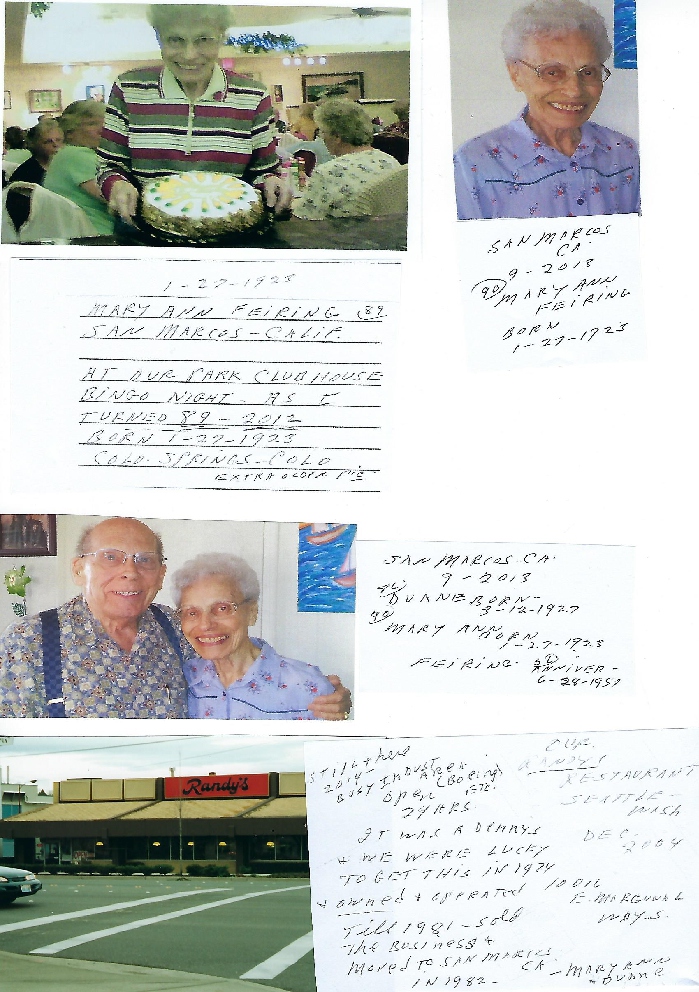 SAN MARCOS
CA.
9-2013
90 MARY ANN
FEIRING
BORN
1-27-1923
1-27-1923
MARY ANN FEIRING (89
SAN MARCOS-CALIF.
AT OUR PARK CLUBHOUSE
BINGO NIGHT- AS I
TURNED 89 - 2012
BORN 1-27-1923
COLO-SPRINGS-COLO
EXTRA OLDER
SAN MARCOS CA.
9-2013
DUANE BORN-
3-12-1927
90
MARY ANN BORN
1-27-1923
FEIRING
ANNIVER-
6-28-195
Randy's
STILL there
2014-
BUSY INDUST AREA
OPEN (BOEING
24 HRS. ETC.
IT WAS A DENNYS
+ WE WERE LUCKY
TO GET THIS IN 1974
+ owned + operated
Till 1981-sold
THE BUSINESS +
Moved To SAN MARCOS
CA
IN 1982-
OUR
RANDYS
RESTAURANT
SEATTLE-
WASH
DEC-
2004
10016
E. MARGINAL
WAY S.
- MARY ANN
+ DUANE